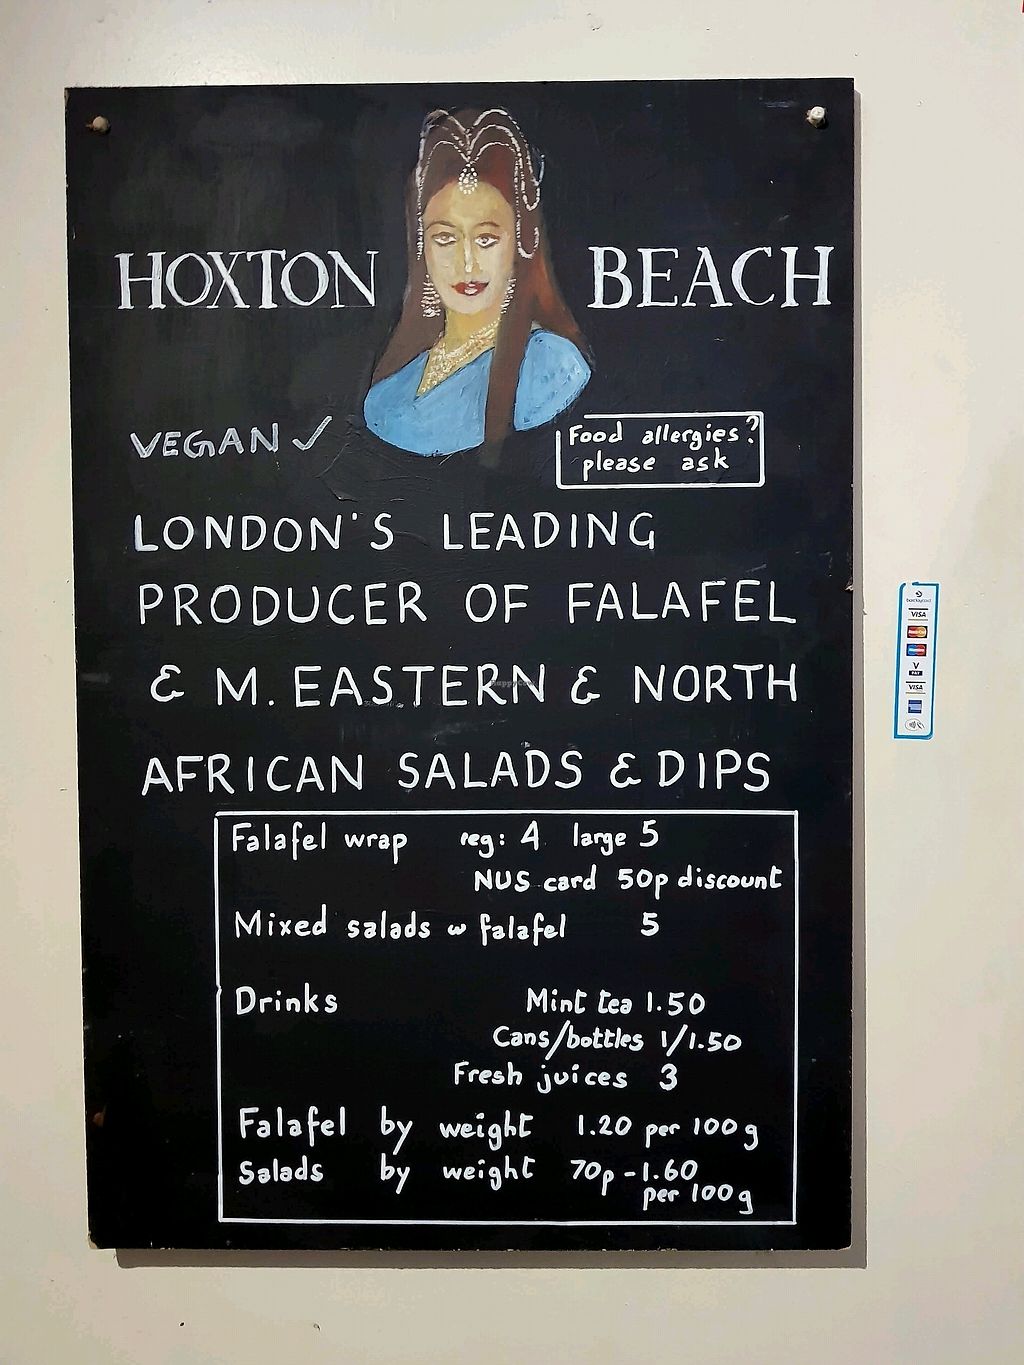 HOXTON BEACH
VEGAN ✓
Food allergies?
please ask
LONDON'S LEADING
PRODUCER OF FALAFEL
& M. EASTERN & NORTH
AFRICAN SALADS & DIPS
Falafel wrap reg: 4 large 5
NUS card 50p discount
Mixed salads w falafel 5
Drinks Mint tea 1.50
Cans/bottles 1/1.50
Fresh juices 3
Falafel by weight 1.20 per 100g
Salads by weight 70p-1.60
per 100g
barclaycard
VISA
V
PAY
VISA